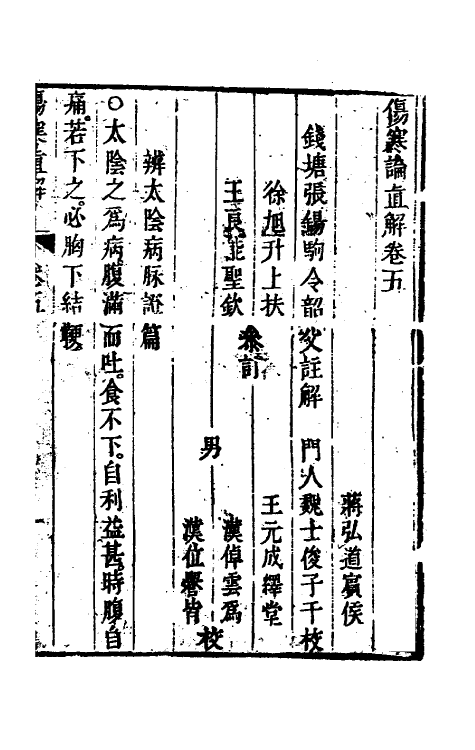 傷寒論直解卷五
蔣弘道賓侯
錢塘張錫駒令韶父註解 門人魏士俊子干校
徐旭升上扶 王元成繹堂
參訂
王良能聖欽 漢倬雲為
男 校
漢位譽皆
辨太陰病脉證篇
○太陰之爲病腹滿而吐。食不下。自利益甚。時腹自
痛。若下之。必胸下結鞕。
傷寒直解 卷五